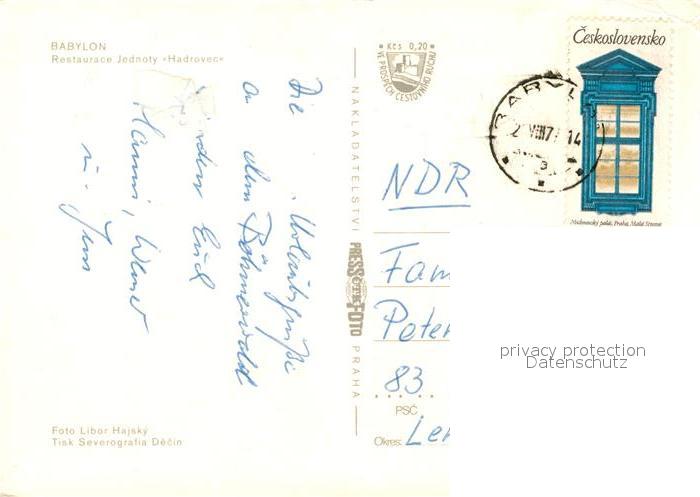 BABYLON
Restaurace Jednoty »Hadrovec«
Die Urlaubsgrüße
a dem Böhmerwald
Euch
Hanni, Werner
u. Jens
Foto Libor Hajský
Tisk Severografia Děčín
NAKLADATELSTVÍ PRESSFOTO PRAHA
Kčs 0,20
VE PROSPĚCH CESTOVNÍHO RUCHU
Československo
Michnovský palác, Praha, Malá Strana
BABYL
14
NDR
Fam
Peter
83
PSČ
Okres: Len
privacy protection
Datenschutz